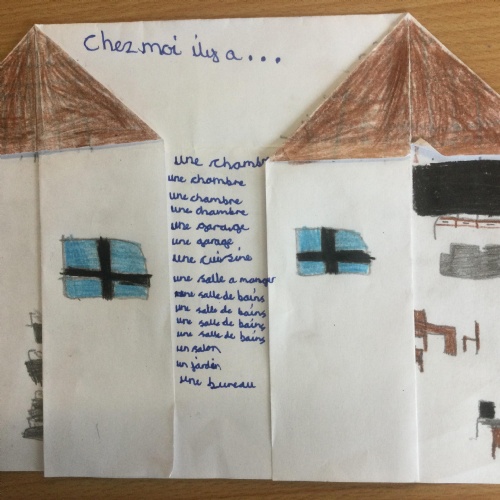 Chez moi il y a...
une chambre
une chambre
une chambre
une chambre
une garage
une garage
une cuisine
une salle a manger
une salle de bains
une salle de bains
une salle de bains
une salle de bains
un salon
un jardin
une bureau